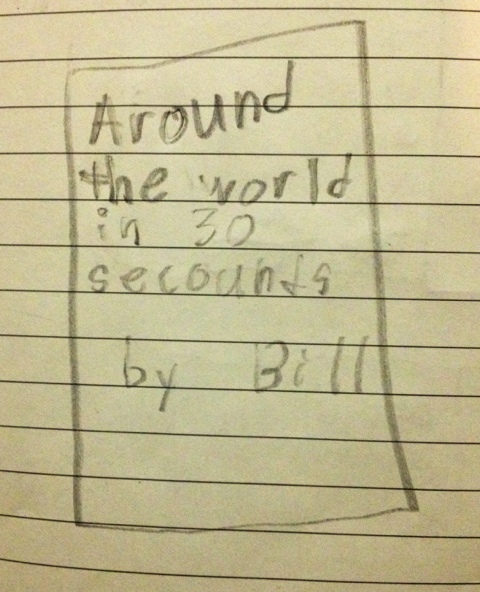 Around
the world
in 30
secounts
by Bill